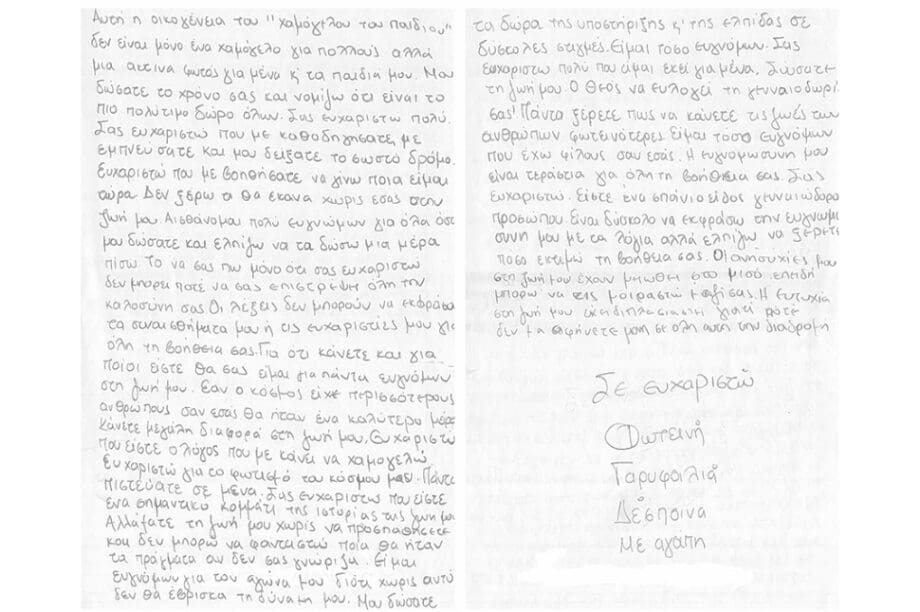 Αυτή η οικογένεια του "χαμόγελου του παιδιου"
δεν είναι μόνο ένα χαμόγελο για πολλούς αλλά
μια ακτινα φωτός για μένα κ' τα παιδιά μου. Μου
δώσατε το χρόνο σας και νομίζω ότι είναι το
πιο πολύτιμο δώρο όλων. Σας ευχαριστώ πολύ.
Σας ευχαριστώ που με καθοδηγησατε, με
εμπνεύσατε και μου δείξατε το σωστό δρόμο.
Ευχαριστώ που με βοηθήσατε να γίνω ποια είμαι
τώρα. Δεν ξέρω τι θα έκανα χωρίς εσας στην
ζωή μου. Αισθάνομαι πολύ ευγνώμων για όλα όσα
μου δώσατε και ελπίζω να τα δώσω μια μέρα
πίσω. Το να σας πω μόνο ότι σας ευχαριστώ
δεν μπορει ποτέ να σας επιστρεψη όλη την
καλοσύνη σας. Οι λέξεις δεν μπορούν να εκφράσου
τα συναισθήματα μου ή τις ευχαριστίες μου για
όλη τη βοήθεια σας. Για ότι κάνετε και για
ποίοι είστε θα σας είμαι για πάντα ευγνώμων
στη ζωή μου. Εαν ο κόσμος είχε περισσότερους
ανθρώπους σαν εσάς θα ήταν ένα καλύτερο μέρος
Κάνετε μεγάλη διαφορά στη ζωή μου. Ευχαριστώ
που είστε ο λόγος που με κάνει να χαμογελώ
Ευχαριστώ για το φωτισμό του κόσμου μου. Πάντα
πιστεύατε σε μένα. Σας ευχαριστω που είστε
ένα σημαντικό κομμάτι της ιστορίας της ζωη μου
Αλλάξατε τη ζωή μου χωρίς να προσπαθήσετε
και δεν μπορώ να φανταστώ ποια θα ήταν
τα πράγματα αν δεν σας γνώριζα. Είμαι
ευγνώμων για τον αγώνα μου γιατι χωρίς αυτό
δεν θα έβρισκα τη δύναμη μου. Μου δώσατε
τα δώρα της υποστήριξης κ' της ελπίδας σε
δύσκολες στιγμές. Είμαι τοσο ευγνώμων. Σας
ευχαριστω πολύ που είμαι εκεί για μένα. Σώσατε
τη ζωή μου. Ο Θεός να ευλογεί τη γενναιοδωρί
σας! Πάντα ξέρετε πως να κάνετε τις ζωές των
ανθρώπων φωτεινότερες είμαι τόσο ευγνώμων
που έχω φίλους σαν εσάς. Η ευγνωμωσυνη μου
είναι τεράστια για όλη τη βοήθεια σας. Σας
ευχαριστώ. Είστε ένα σπάνιο είδος γενναιώδωρο
προσώπου. Είναι δύσκολο να εκφράσω την ευγνωμ
σύνη μου με τα λόγια αλλά ελπίζω να ξέρετε
ποσο εκτιμώ τη βοήθεια σας. Οι ανησυχίες μου
στη ζωή μου έχουν μειωθει στο μισό επειδή
μπορώ να τις μοιραστώ μαζί σας. Η ευτυχία
στη ζωή μου γιατί πότε
δεν με αφήνετε μονη σε όλη αυτη την διαδρομή
Σε ευχαριστώ
Φωτεινή
Γαρυφαλιά
Δέσποινα
με αγάπη